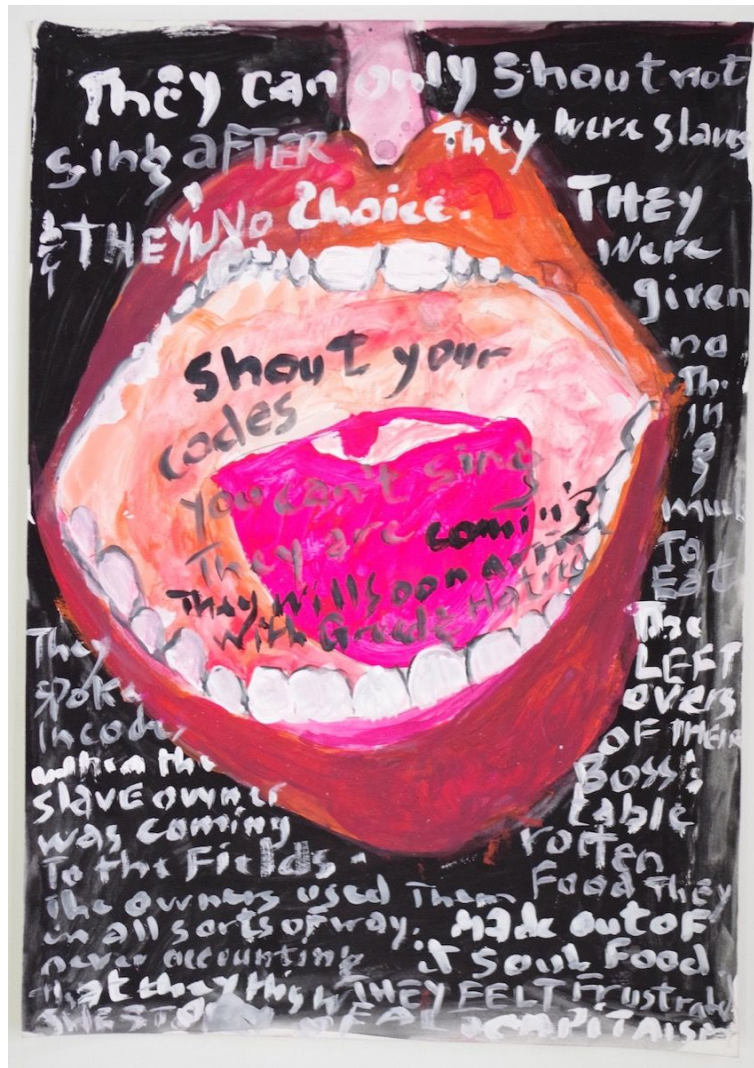 They can only Shout not
Sing AFTER They were slaves
& THEY No Choice.
THEY
were
given
no
Th
in
g
much
To
Eat
The
LEFT
overs
OF THEIR
Boss's
table
rotten
Food They
Made out of
it Soul Food
THEY FELT Frustrated
CAPITALISM
Shout your
codes
you can't sing
They are coming
They will soon arrive
with Greed & Hatred
They
spoke
in code
when the
slave owner
was coming
To the Fields.
The owners used Them
in all sorts of way.
never accounting
that they